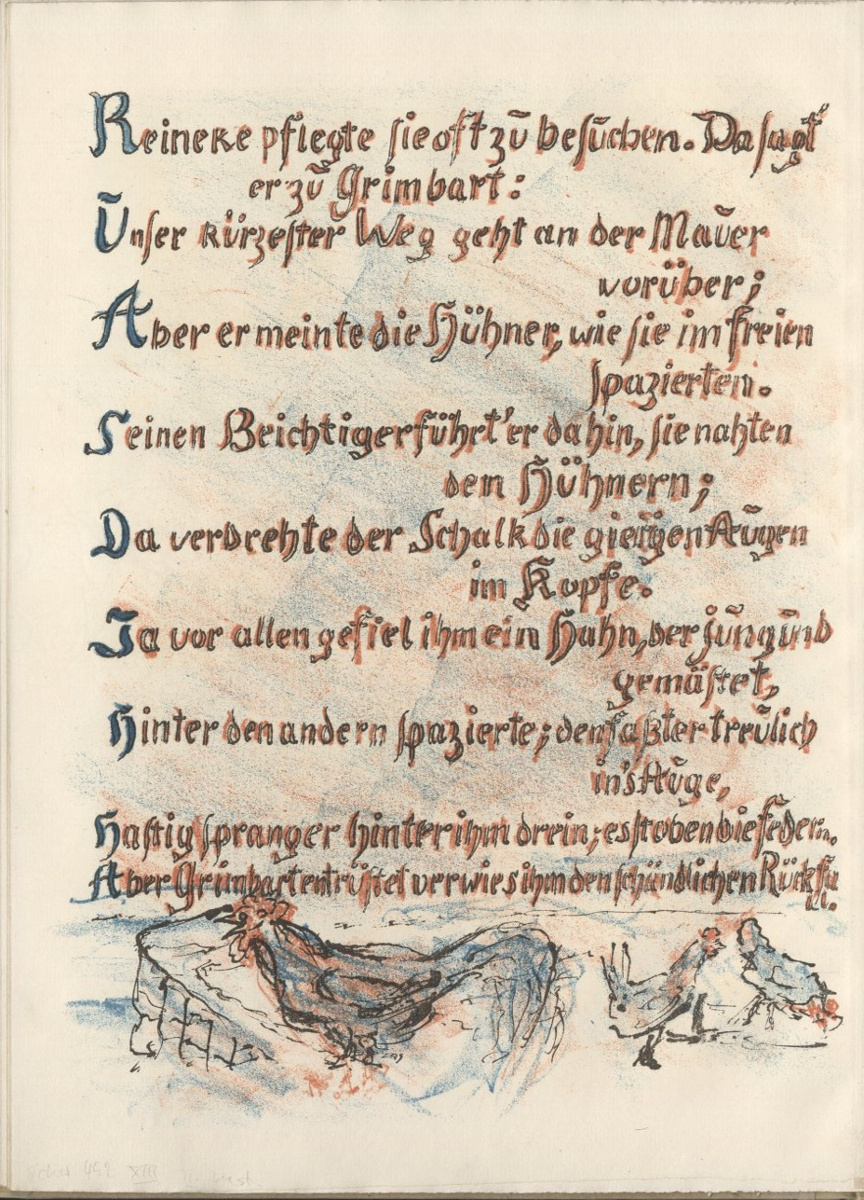 Reineke pflegte sie oft zu besuchen. Da sagt
er zu Grimbart:
Unser kürzester Weg geht an der Mauer
vorüber;
Aber er meinte die Hühner, wie sie im freien
spazierten.
Seinen Beichtiger führt' er dahin, sie nahten
den Hühnern;
Da verdrehte der Schalk die gierigen Augen
im Kopfe.
Ja vor allen gefiel ihm ein Hahn, der jung und
gemästet,
Hinter den andern spazierte; den faßt er treulich
in's Auge,
Hastig sprang er hinter ihm drein; es stoben die Federn.
Aber Grimbart entrüstet verwies ihm den schändlichen Rückfall.
XIII